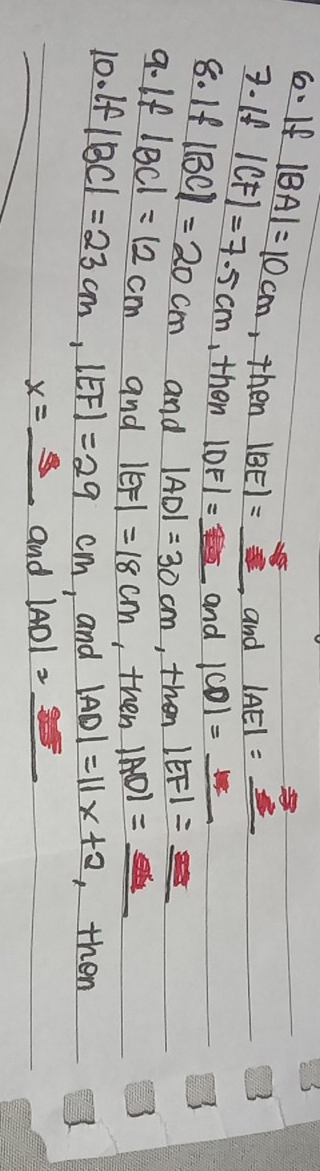 6. If |BA| = 10 cm, then |BE| = ___, and |AE| = ___
7. If |CF| = 7.5 cm, then |DF| = ___ and |CD| = ___
8. If |BC| = 20 cm and |AD| = 30 cm, then |EF| = ___
9. If |BC| = 12 cm and |EF| = 18 cm, then |AD| = ___
10. If |BC| = 23 cm, |EF| = 29 cm, and |AD| = 11x+2, then
x = ___ and |AD| = ___